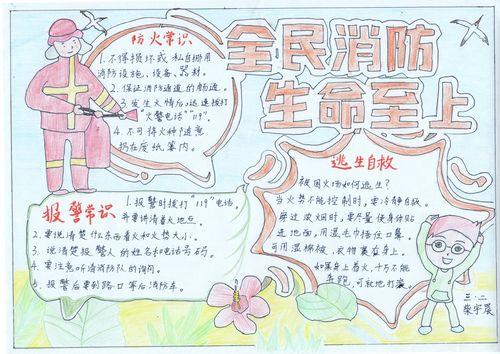 全民消防
生命至上
防火常识
1.不得损坏或私自挪用
消防设施、设备、器材。
2.保证消防通道的畅通。
3.发生火情后迅速拨打
"火警电话"119"。
4.不可得火种随意
扔在废纸篓内。
报警常识
1.报警时拨打"119"电话,
并要讲清着火地点。
2.要说清楚什么东西着火和火势大小。
3.说清楚报警人的姓名和电话号码。
4.要注意听清消防队的询问。
5.报警后要到路口等后消防车。
逃生自救
被困火场如何逃生?
当火势不能控制时,要冷静自救。
穿过浓烟时,要尽量使身体贴
近地面,用湿毛巾捂住口鼻。
可用湿棉被、衣物裹在身上。
如果身上着火,千万不能
奔跑,可就地打滚。
三.二
柴宇晨